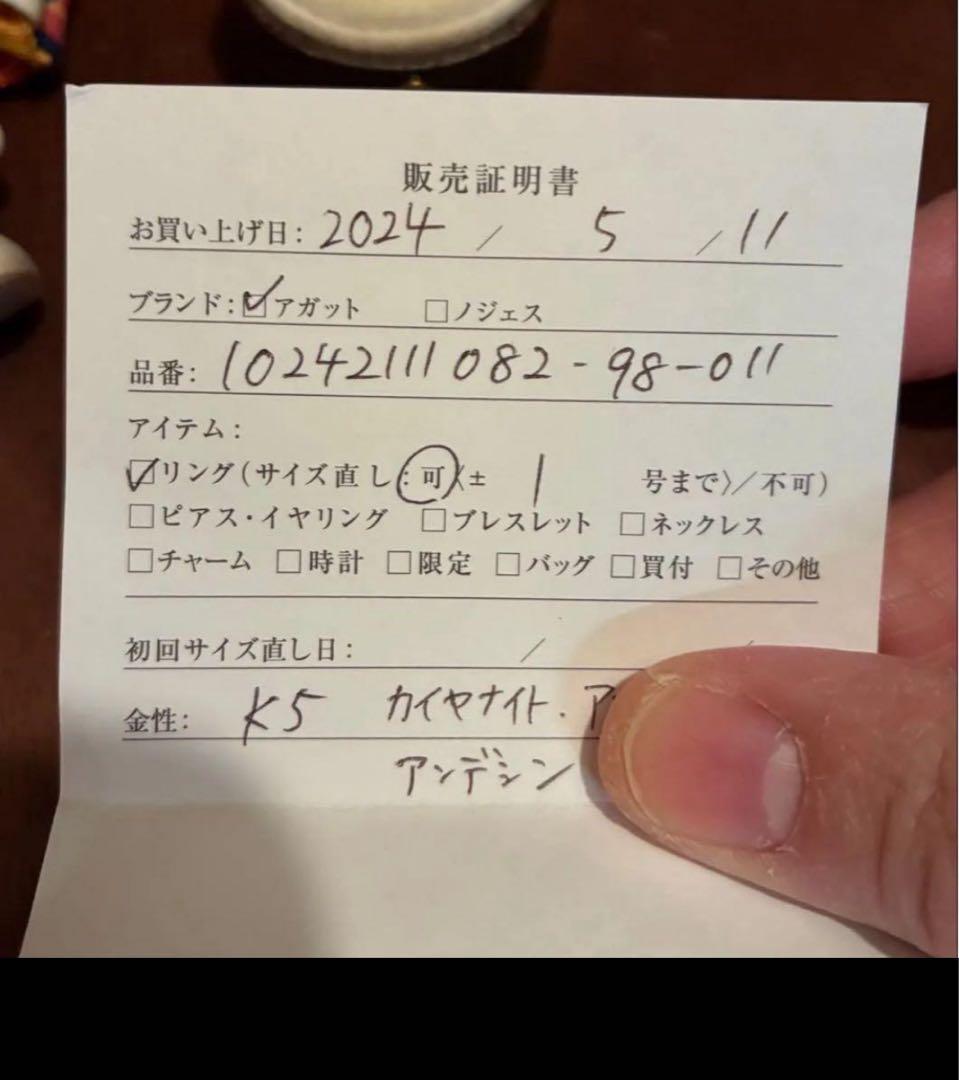 販売証明書
お買い上げ日: 2024 / 5 / 11
ブランド: ☑アガット □ノジェス
品番: 10242111082-98-011
アイテム:
☑リング(サイズ直し:可〈± 1 号まで〉/不可)
□ピアス・イヤリング □ブレスレット □ネックレス
□チャーム □時計 □限定 □バッグ □買付 □その他
初回サイズ直し日: / /
金性: K5 カイヤナイト. ア
アンデシン